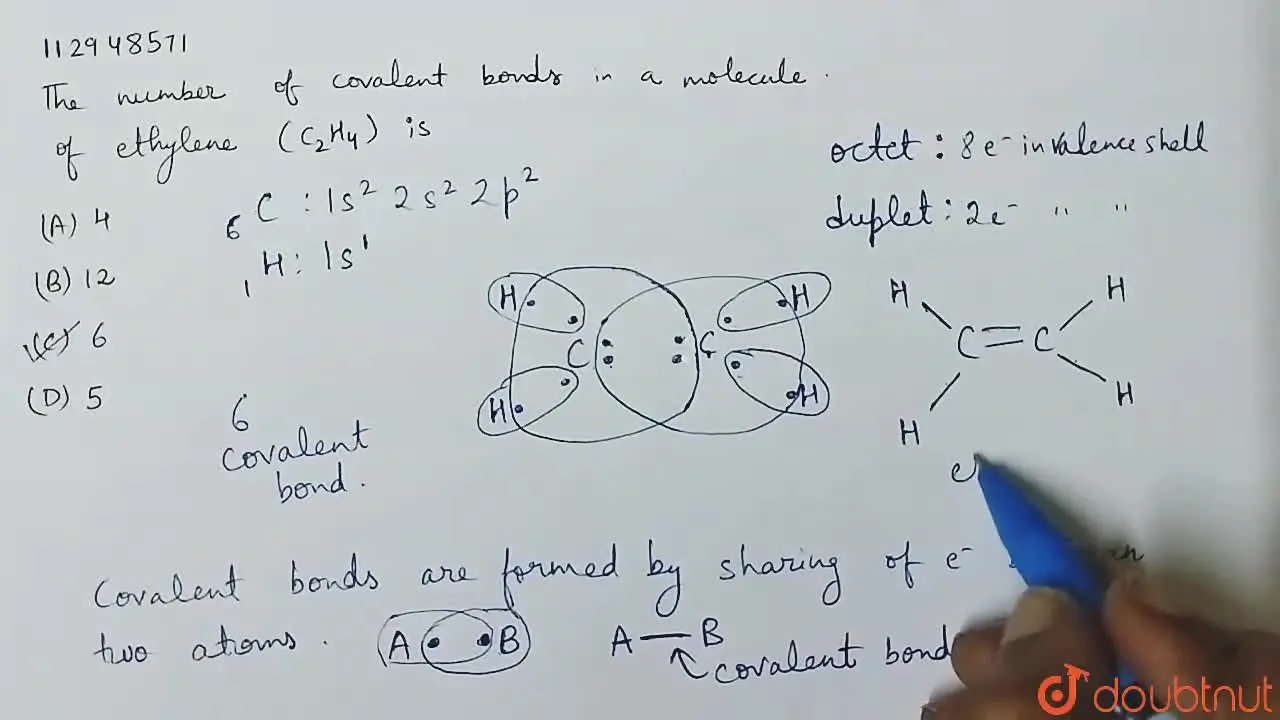 1129 48571
The number of covalent bonds in a molecule.
of ethylene (C₂H₄) is
(A) 4
(B) 12
(C) 6
(D) 5
₆C : 1s² 2s² 2p²
₁H : 1s¹
octet : 8 e⁻ in valence shell
duplet : 2e⁻ " "
H H
C C
H H
H H
C = C
H
H
6
covalent
bond.
e
Covalent bonds are formed by sharing of e⁻
two atoms. A B A — B
covalent bond
doubtnut